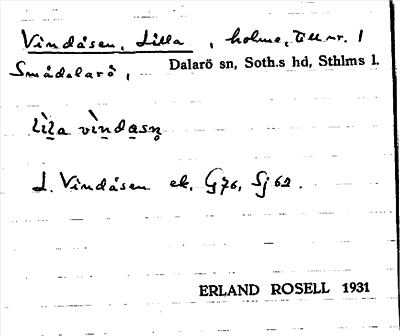 Vindåsen, Lilla, holme, till nr. 1
Smådalarö, Dalarö sn, Soth.s hd, Sthlms l.
lìla vìndasn̥
L. Vindåsen ek. G76, Sj62.
ERLAND ROSELL 1931